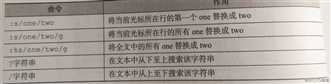 命令 作用
:s/one/two 将当前光标所在行的第一个 one 替换成 two
:s/one/two/g 将当前光标所在行的所有 one 替换成 two
:%s/one/two/g 将全文中的所有 one 替换成 two
?字符串 在文本中从下至上搜索该字符串
/字符串 在文本中从上至下搜索该字符串